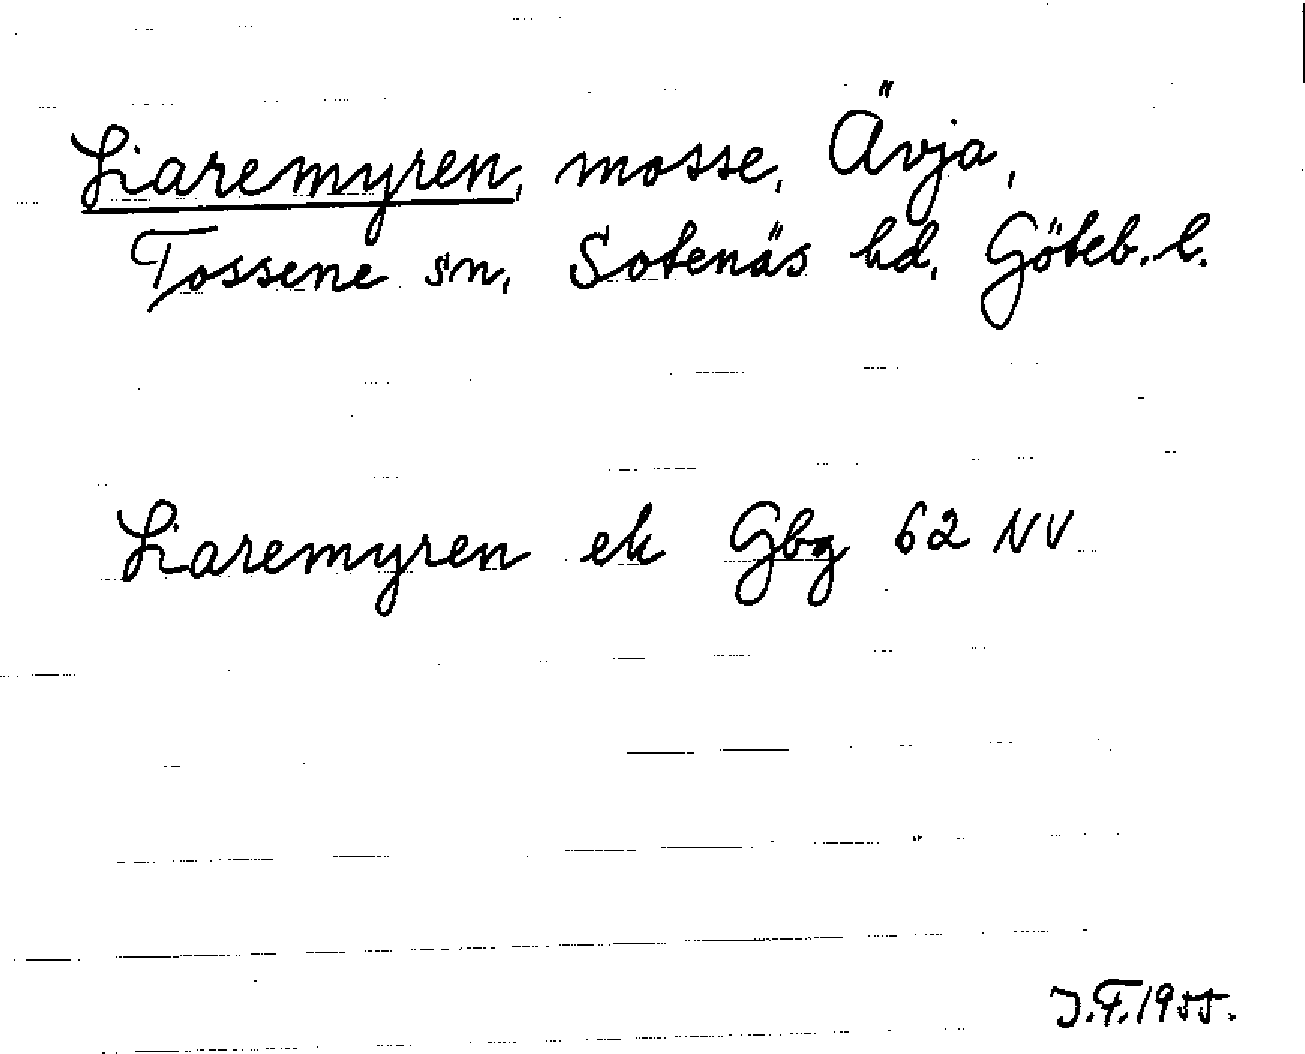 Liaremyren, mosse, Ävja,
Tossene sn, Sotenäs hd, Göteb. l.
Liaremyren ek Gbg 62 NV
J.F.1955.